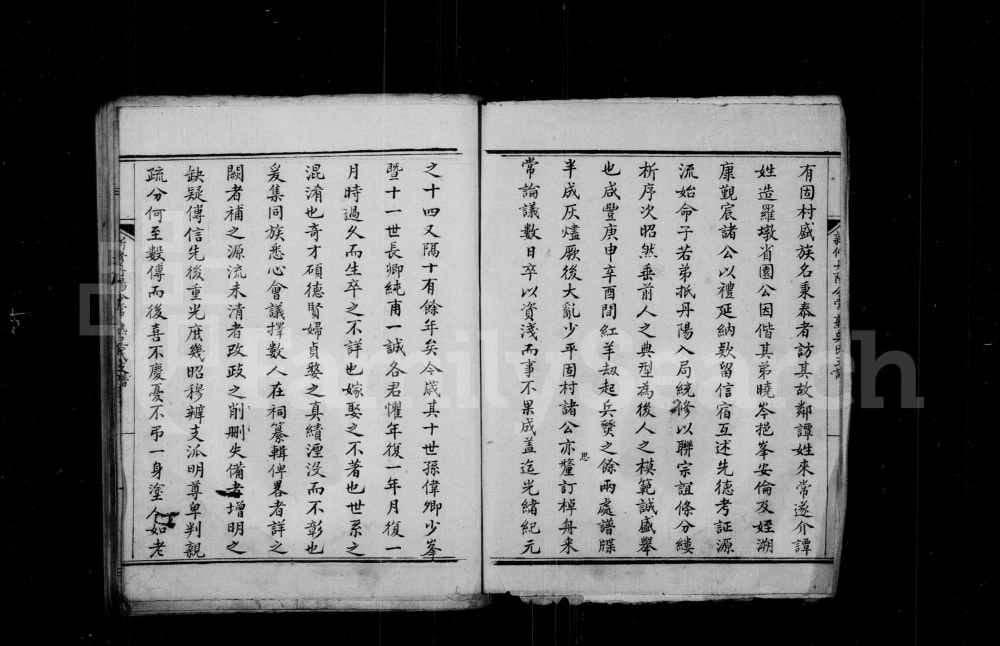 有固村盛族名秉泰者訪其故鄰譚姓來常遂介譚
姓造羅墩省園公因偕其弟曉岑挹峯安倫及姪溯
康覲宸諸公以禮延納欵留信宿互述先德考証源
流始命子若弟抵丹陽入局統修以聯宗誼條分縷
析序次昭然垂前人之典型為後人之模範誠盛舉
也咸豐庚申辛酉間紅羊刼起兵燹之餘兩處譜牒
半成灰燼厥後大亂少平固村諸公亦釐訂棹舟来
思
常論議數日卒以資淺而事不果成盖迄光緒紀元
之十四又隔十有餘年矣今歲其十世孫偉卿少峯
暨十一世長卿純甫一誠各君懼年復一年月復一
月時過久而生卒之不詳也嫁娶之不著也世系之
混淆也奇才碩德賢婦貞嫠之真績湮没而不彰也
爰集同族悉心會議擇數人在祠纂輯俾畧者詳之
闕者補之源流未清者改政之削删失備者增明之
缺疑傳信先後重光庶幾昭穆辨支派明尊卑判親
疏分何至數傳而後喜不慶憂不弔一身塗人如老
FamilySearch